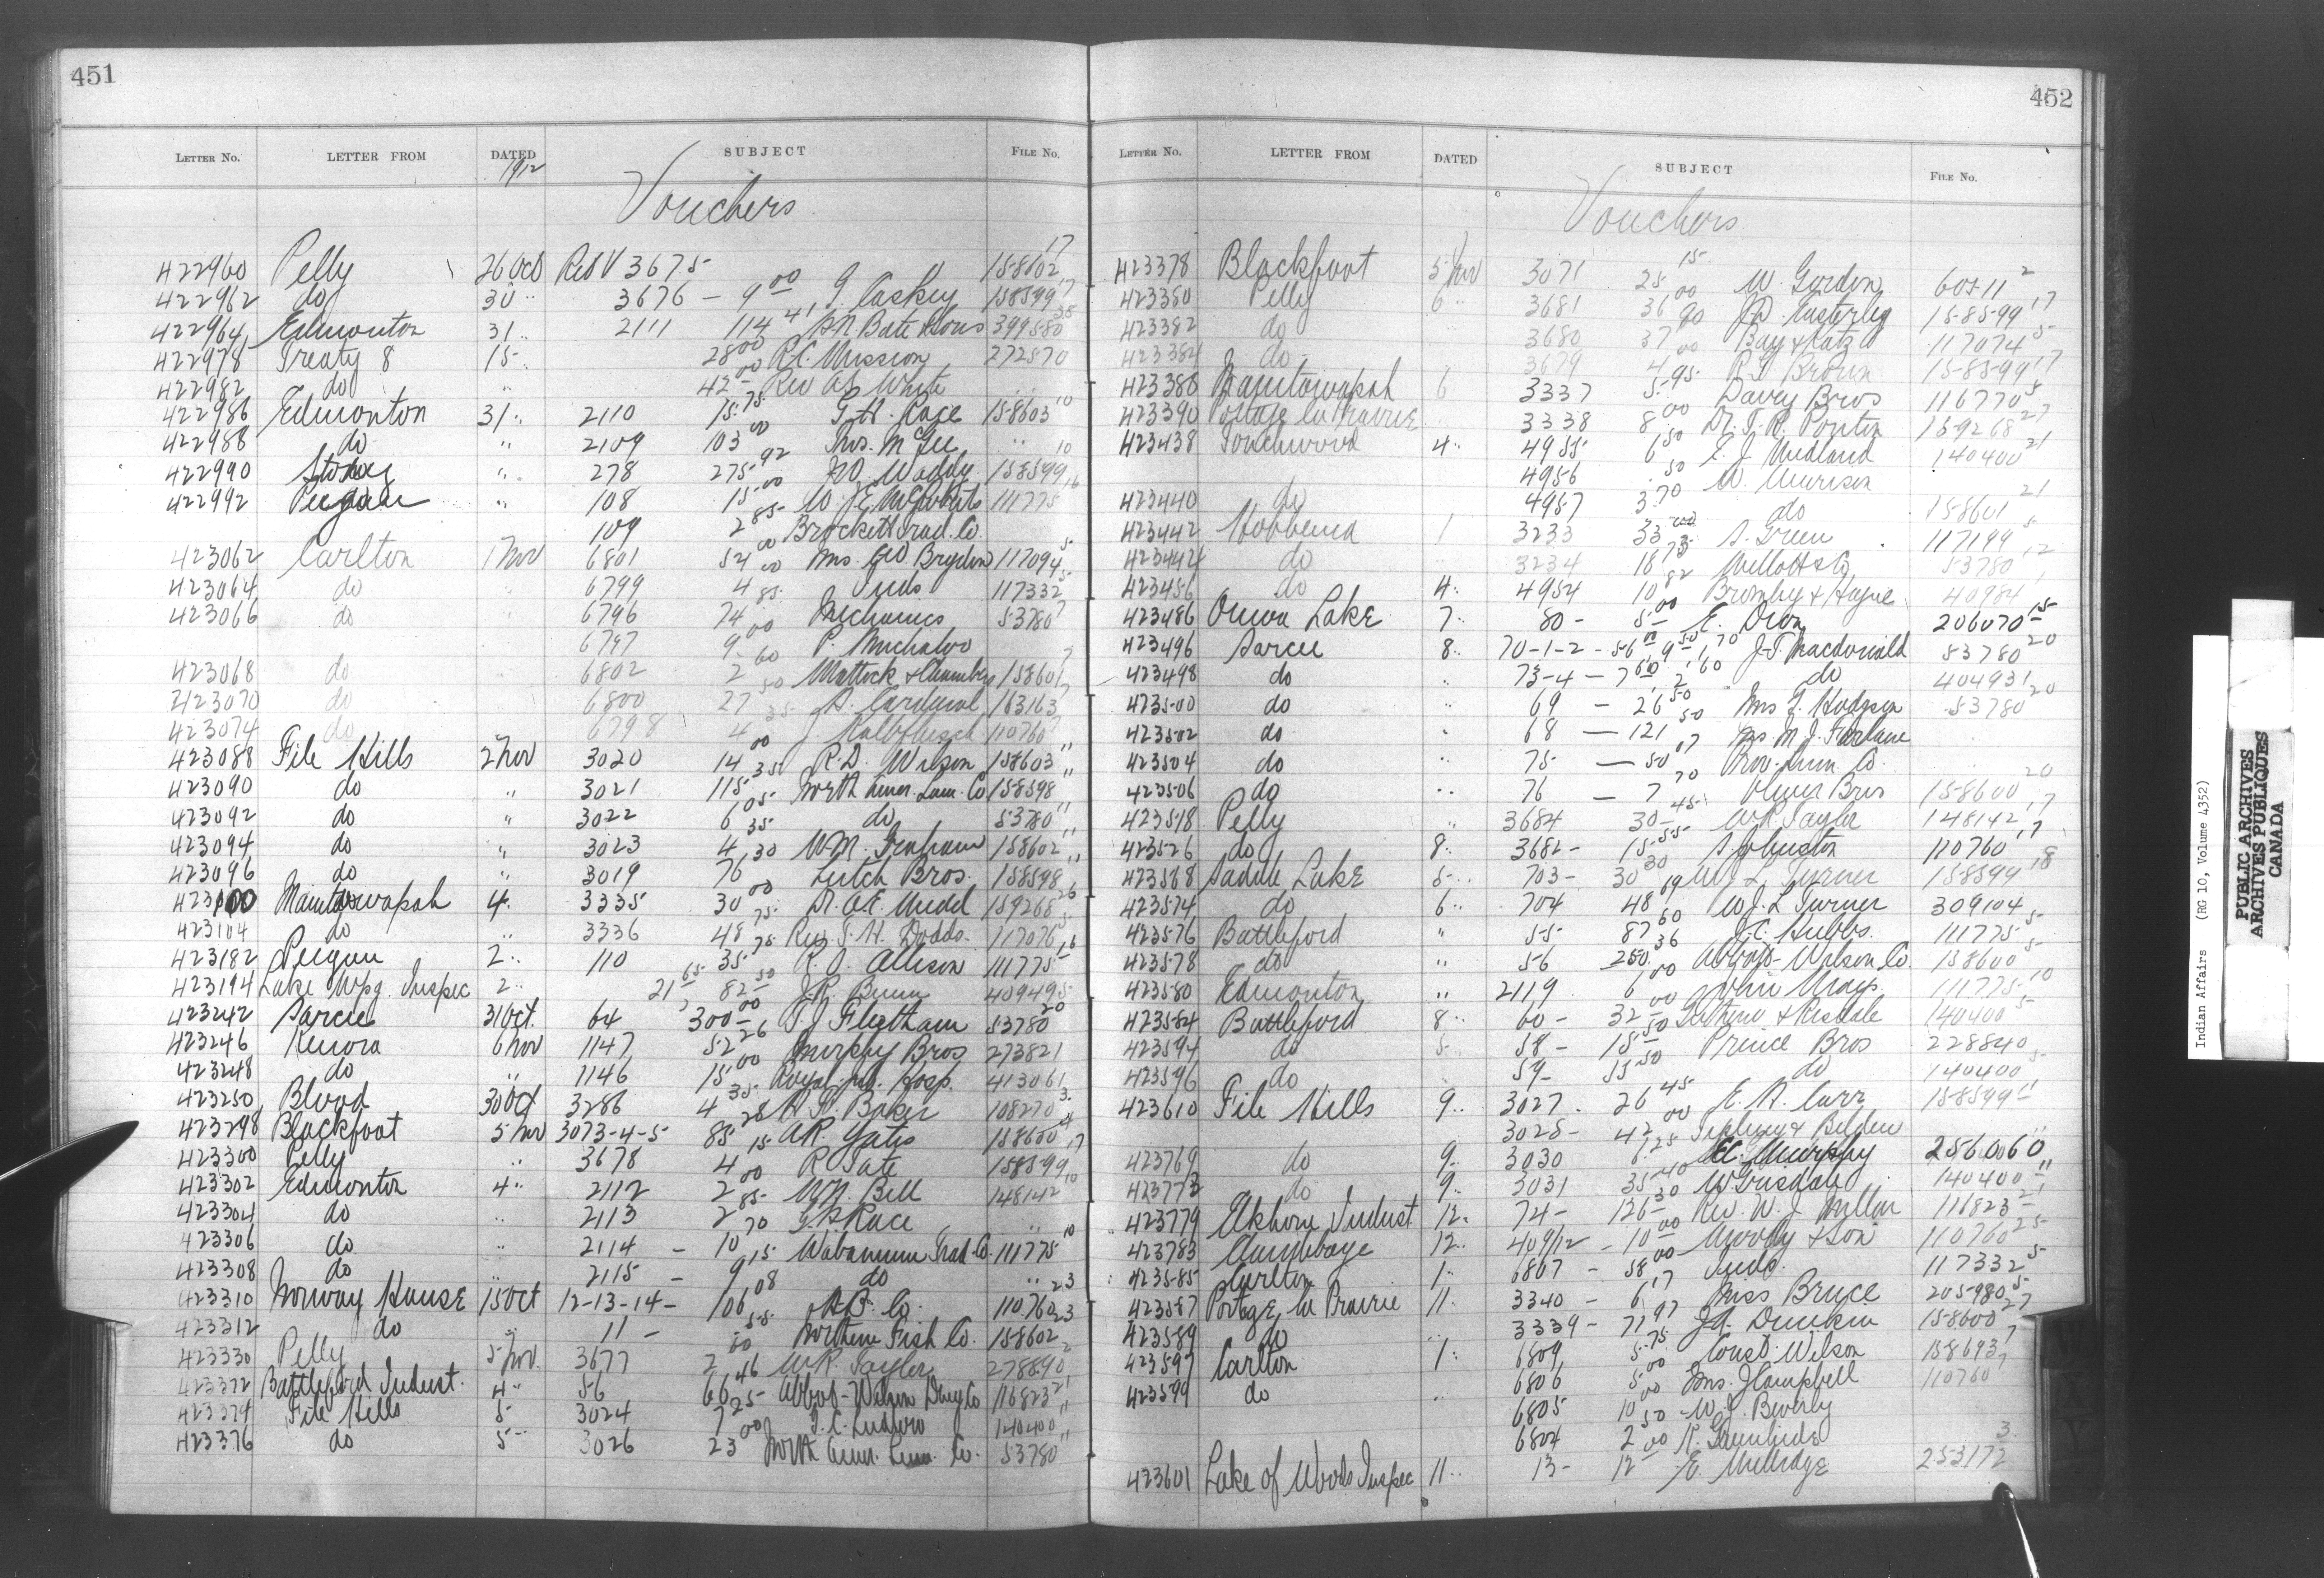 451
LETTER No. LETTER FROM DATED SUBJECT FILE No.
1912
Vouchers
422960 Pelly 26 Oct Ret V 3675 158602 17
422962 do 30 " 3676 - 9 00 G. Caskey 158599 17
422964 Edmonton 31 " 2111 114 41 H.N. Bate & Sons 399580 38
422978 Treaty 8 15 " 28 00 R.C. Mission 272570
422982 do " 42 00 Rev A.S. White " "
422986 Edmonton 31 " 2110 15 75 G.H. Race 158603 10
422988 do " 2109 103 00 Thos. McGee " 10
422990 Stoney " 278 275 92 J.W. Waddy 158599
422992 Peigan " 108 15 00 W. J.E. McRoberts 111775 16
109 2 85 Brockett Trad. Co.
423062 Carlton 1 Nov 6801 54 00 Mrs. Geo Brydon 117094 5
423064 do " 6799 4 00 Inds 117332 5
423066 do 6796 74 85 Mechanics 53780 7
6797 9 00 P. Michalov
423068 do 6802 2 60 Mattock & Chambers 158601 7
423070 do 6800 27 50 A. Cardinal 163163 7
423074 do 6798 4 35 J. Kalbfleisch 110760 7
423088 File Hills 2 Nov 3020 14 00 R.D. Wilson 158603 11
423090 do " 3021 115 35 North Amer. Lum. Co 158598 11
423092 do " 3022 6 05 do 53780 11
423094 do " 3023 4 35 W.M. Graham 158602 11
423096 do " 3019 76 30 Leitch Bros. 158598 11
423100 Manitowapah 4 " 3335 30 00 Dr. O.E. 159268 26
423104 do " 3336 48 75 Rev. S.H. Dodds 117076 5
423182 Peigan 2 " 110 35 75 R.J. Allison 111775 16
423194 Lake Wpg. Inspec 2 " 21 65, 82 50 J.R. Bunn 40949 5
423242 Sarcee 31 Oct. 64 300 00 T.J. Fleetham 53780 20
423246 Kenora 6 Nov 1147 52 26 Murphy Bros 273821
423248 do " 1146 15 00 Royal Jub. Hosp. 413061
423250 Blood 30 Oct 3286 4 35 Baker 108270 3
423298 Blackfoot 5 Nov 3073-4-5 85 28 A.R. Yates 158600 4
423300 Pelly " 3678 4 15 R Tate 158599 17
423302 Edmonton 4 " 2112 2 00 W.N. Bell 148142 10
423304 do " 2113 2 85 G.H. Race
423306 do " 2114 - 10 70 Wabamun Trad. Co. 111775 10
423308 do " 2115 - 9 15 do "
423310 Norway House 15 Oct 12-13-14- 106 08 H.B. Co. 110760 23
423312 do " 11 - 55 Northern Fish Co. 158602 23
423330 Pelly 5 Nov. 3677 2 00 W.R. Taylor 278890 2
423372 Battleford Indust. 4 " 56 66 46 Abbot-Wilson Drug Co 116823 21
423374 File Hills 5 3024 7 25 T.C. 140400 11
423376 do 5 " 3026 23 00 North Amer. Lum. Co. 53780 11
452
LETTER No. LETTER FROM DATED SUBJECT FILE No.
Vouchers
423378 Blackfoot 5 Nov 3071 25 15 W. Gordon 60511 2
423380 Pelly 6 " 3681 36 00 J.D. Easterley 158599 17
423382 do 3680 37 90 Bay & Katz 117074 5
423384 do 3679 4 00 R.S. Brown 158599 17
423386 Manitowapah 6 3337 5 95 Davey Bros 116770 5
423390 Portage la Prairie 3338 8 00 Dr. T.R. Ponton 159268 27
423438 Touchwood 4 " 4955 6 50 E. J. Midland 140400 21
4956 50 W. Murison
423440 do 4957 3 70 do 158601 21
423442 Hobbema 1 3233 33 00 S. Green 117199 5
423444 do 3234 18 75 Mellott & Co 53780 12
423456 do 4 " 4954 10 82 Bromley & Hague 40984 1
423486 Onion Lake 7 " 80 - 5 00 E. Dion 206070 15
423496 Sarcee 8 " 70-1-2 - 56 00, 9 50, 1 70 J.T. Macdonald 53780 20
423498 do " 73-4 - 7 60, 2 60 do 404931
423500 do " 69 - 26 50 Mrs T. Hodgson 53780 20
423502 do " 68 - 121 50 Mrs M.J. Farlane
423504 do " 75 - 50 07 Prov. Lum. Co.
423506 do " 76 - 7 70 Oliver Bros 158600 20
423518 Pelly " 3684 30 45 W.R. Taylor 148142 17
423526 do 8 " 3682 - 15 55 S. Johnston 110760 17
423568 Saddle Lake 5 " 703 - 30 30 W.J.L. Turner 158599 18
423574 do 6 " 704 48 69 W.J.L. Turner 309104
423576 Battleford " 55 87 60 J.C. Hubbs 111775 5
423578 do " 56 250 36 Abbott-Wilson Co. 158600 5
423580 Edmonton " 2119 6 00 John Mays 111775 10
423584 Battleford 8 " 60 - 32 00 & Risdale 140400 5
423594 do 5 58 - 15 50 Prince Bros 228840
423596 do 59 - 55 50 do 140400 5
423610 File Hills 9 " 3027 26 45 E.A. Carr 158599 11
3028 - 42 00 & Belden "
423769 do 9 " 3030 6 25 C. Murphy 256060 11
423773 do 9 " 3031 35 40 W Grisdale 140400 11
423779 Elkhorn Indust 12 " 74 - 126 30 Rev. W.J. Millar 116823 21
423783 12 " 409/12 - 10 00 Moody & Son 110760 25
423585 Carlton 1 " 6807 - 58 00 Inds. 117332 5
423587 Portage la Prairie 11 " 3340 - 6 17 Miss Bruce 205980 5
423589 do " 3339 - 71 97 J.A. Dunkin 158600 27
423597 Carlton 1 " 6809 5 75 Const. Wilson 158693 7
423599 do " 6806 5 00 Mrs. J. Campbell 110760 7
6805 10 00 W.J. Beverly
6804 2 50 R. Greenleese
423601 Lake of Woods Inspec 11 " 13 - 12 00 E. Millidge 253172 3
PUBLIC ARCHIVES
ARCHIVES PUBLIQUES
CANADA
Indian Affairs (RG 10, Volume 4352)